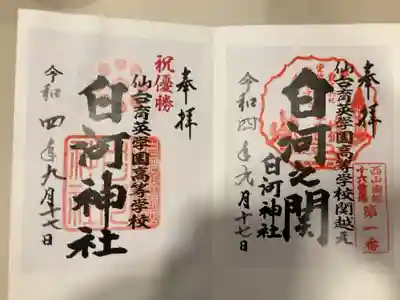 奉拝
白河之関
仙台育英学園高等学校関越え
白河神社
令和四年九月十七日
第一番
奉拝
祝優勝
仙台育英学園高等学校
白河神社
令和四年九月十七日